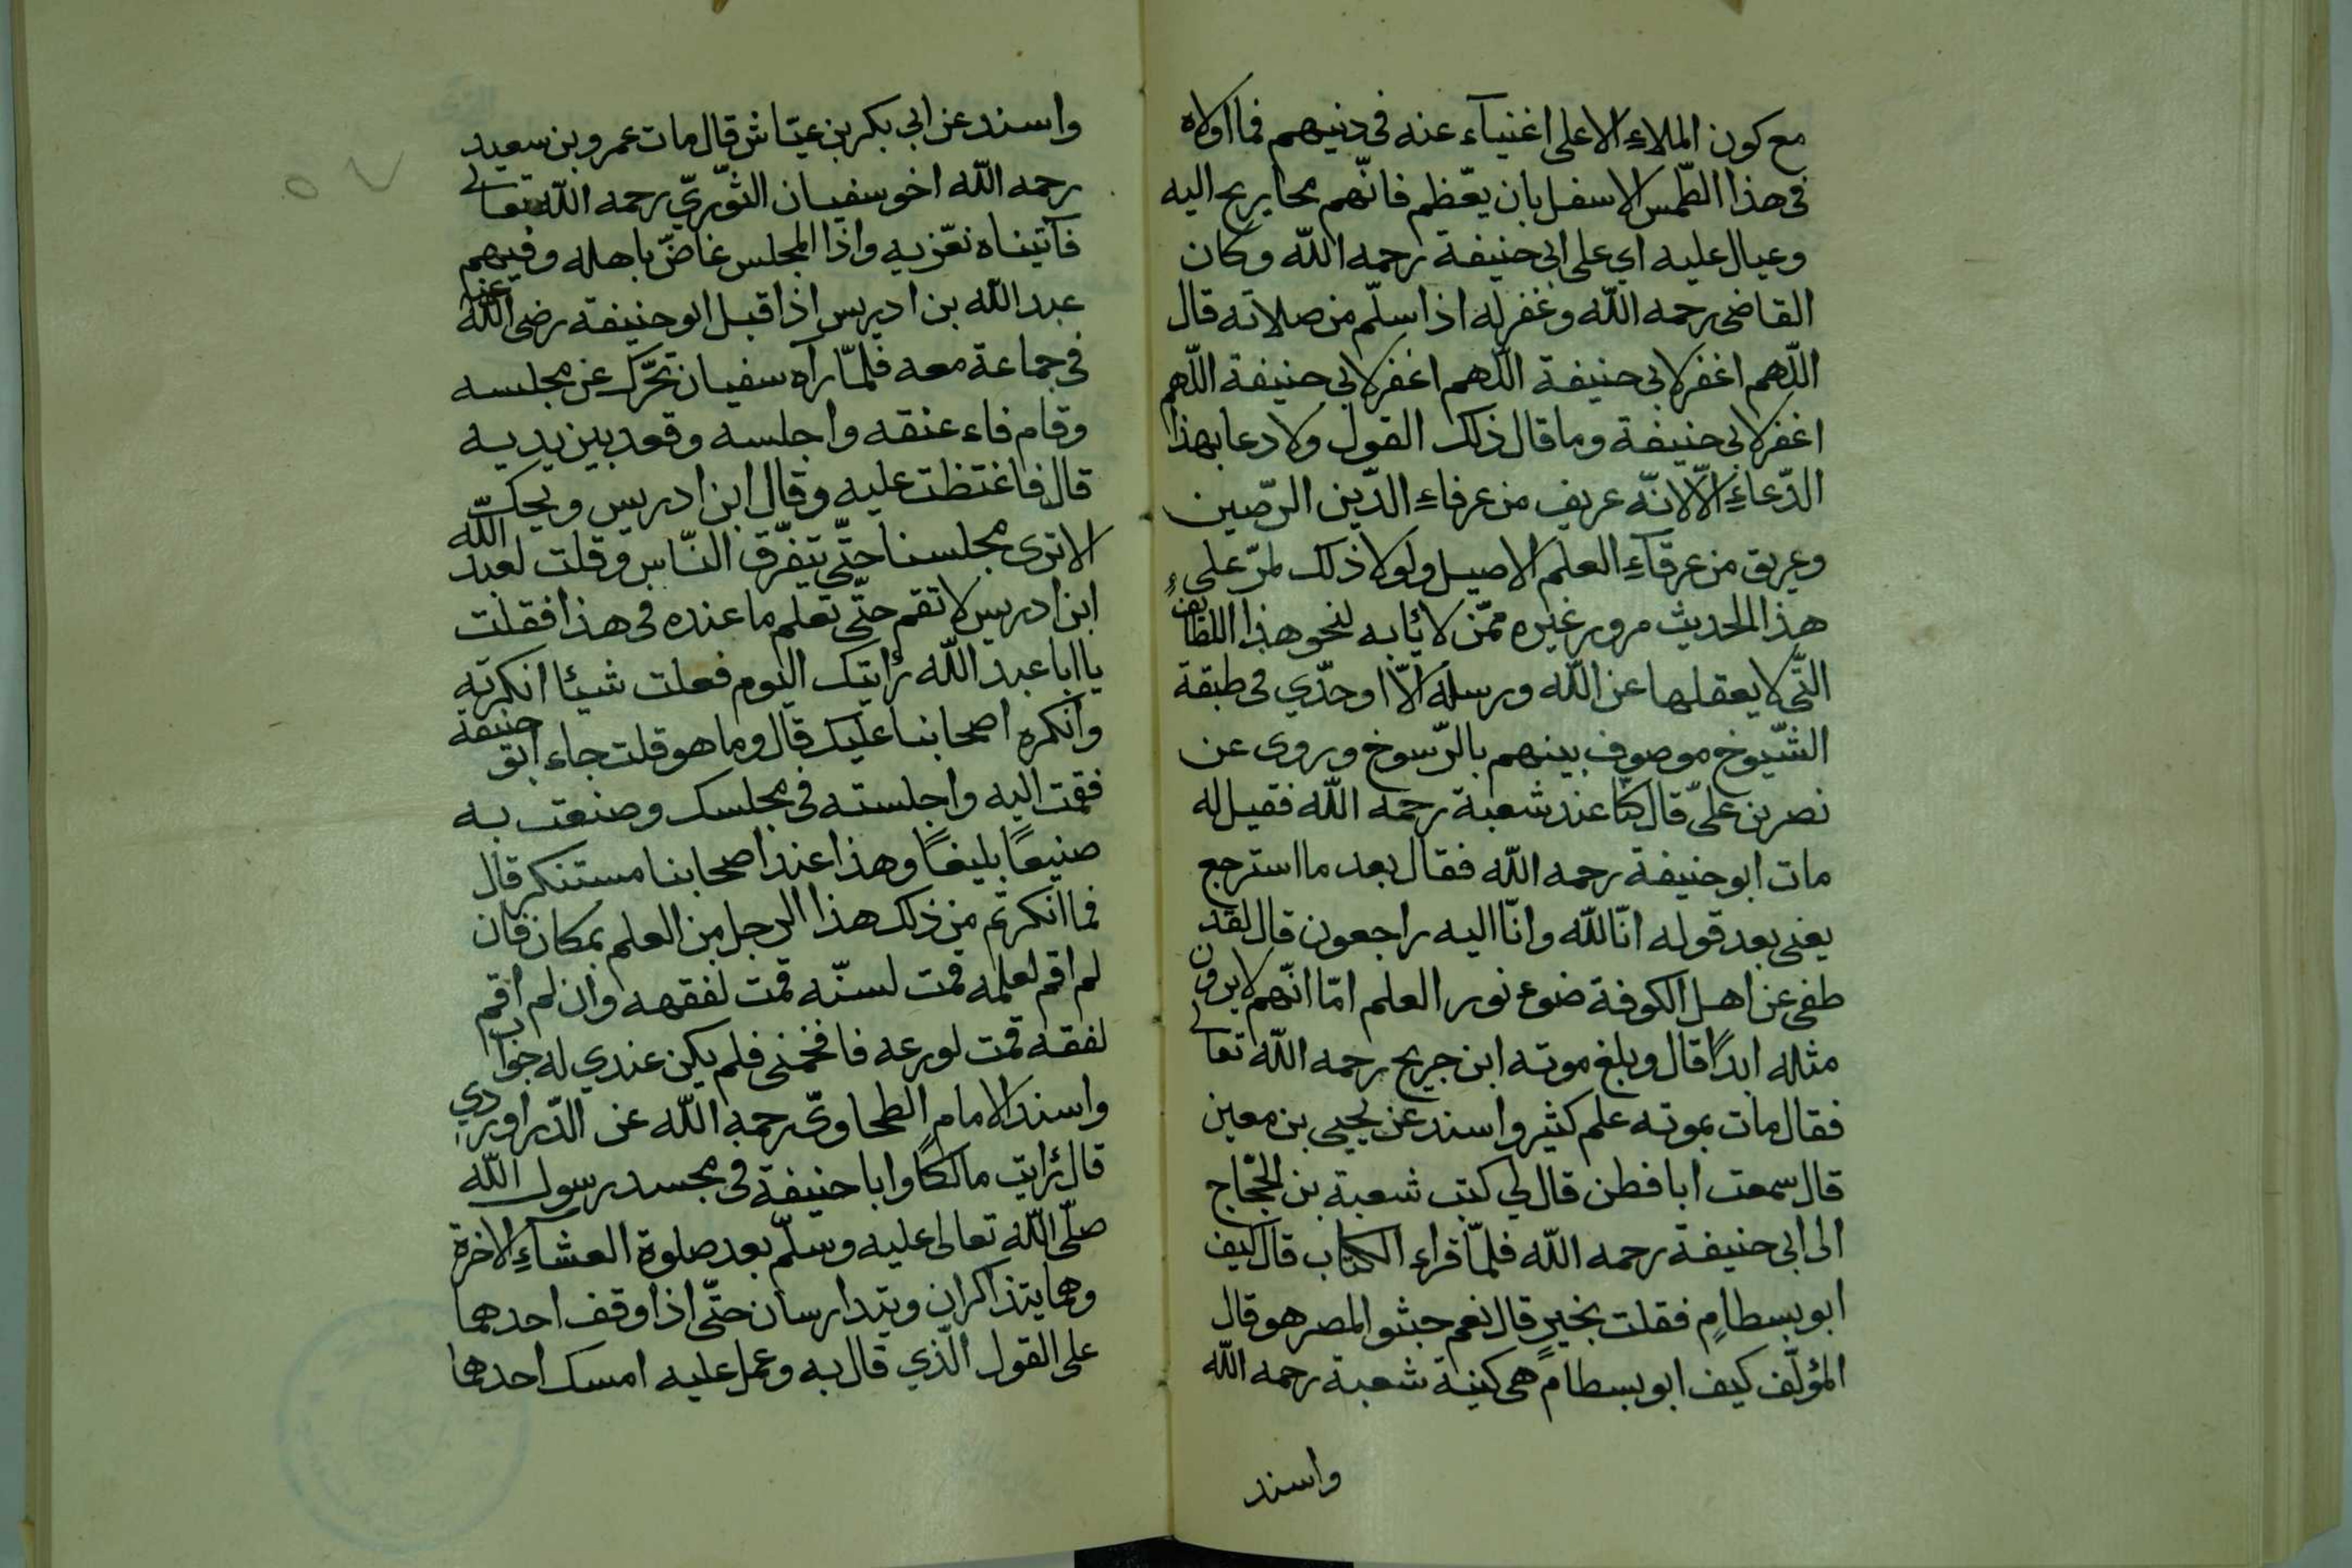 مع كون الملاءِ الاعلى اغنياَء عنه فى دنيهم فما اولاه
فى هذا الطّمس الاسفل بان يعّظم فانّهم محا يريح اليه
وعيال عليه اي على ابى حنيفة رحمه اللّه وكان
القاضى رحمه اللّه وغفر له اذا سلّم من صلاته قال
اللّهم اغفر لابى حنيفة اللّهم اغفر لابى حنيفة اللّهم
اغفر لابى حنيفة وما قال ذلك القول ولا دعا بهذا
الدّعاءِ الّا لانّه عريف من عرفاءِ الدّين الرّصين
وعريق من عرقاَءِ العلم الاصيل ولولا ذلك لمرّ على
هذا الحديث مرور غيره ممّن لا ئابه لنحو هذا اللطائف
التّى لا يعقلها عن اللّه ورسله الّا اوحدّي فى طبقة
الشّيوخ موصوف بينهم بالرّسوخ وروى عن
نصر بن علىّ قال كنّا عند شعبة رحمه اللّه فقيل له
مات ابو حنيفة رحمه اللّه فقال بعد ما استرجع
يعنى بعد قوله انّا للّه وانّا اليه راجعون قال لقد
طفى عن اهل الكوفة ضوء نور العلم امّا انّهم لا يرون
مثله ابدًا قال وبلغ موته ابن جريح رحمه اللّه تعالى
فقال مات بموته علم كثير واسند عن يحيى بن معين
قال سمعت ابا فطن قال لي كتب شعبة بن الحجّاج
الى ابى حنيفة رحمه اللّه فلمّا قراء الكتاب قال كيف
ابو بسطامٍ فقلت بخيرٍ قال نعم حبثو المصر هو قال
المؤلّف كيف ابو بسطام هى كنية شعبة رحمه اللّه
واسند
واسند عن ابي بكر بن عيّاش قال مات عمرو بن سعيد
رحمه اللّه اخو سفيان الثّوّريّ رحمه اللّه تعالى
فآتيناه نعّزيه واذا المجلس غاضّ باهله وفيهم
عبد اللّه بن ادريس اذا قبل ابو حنيفة رضى اللّه عنها
فى جماعة معه فلمّا رآه سفيان تحّرك عن مجلسه
وقام فاء عنقه واجلسه وقعد بين يديه
قال فاغتظت عليه وقال ابن ادريس ويحك
الا ترى مجلسنا حتّى يتفّرق النّاس وقلت لعبد اللّه
ابن ادريس لا تقم حتّى تعلم ما عنده فى هذا فقلت
يا ابا عبد اللّه رٔايتك اليوم فعلت شيئا انكرته
وانكره اصحابنا عليك قال وما هو قلت جاء ابو حنيفة
فقمت اليه واجلسته فى مجلسك وصنعت به
صنيعًا بليغًا وهذا عند اصحابنا مستنكر قال
فما انكرتم من ذلك هذا الرجل من العلم بمكان فان
لم اقم لعلمه قمت لسنّه قمت لفقهه وان لم اقم
لفقه قمت لورعه فافحمنى فلم يكن عندي له جواب
واسند الامام الطحاوىّ رحمه اللّه عن الدّراوردي
قال رٔايت مالكًا وابا حنيفة فى مجسد رسول اللّه
صلّى اللّه تعالى عليه وسلّم بعد صلوة العشاَءِ الاخرة
وهما يتذاكران ويتدارسان حتّى اذا وقف احدهما
على القول الّذي قال به وعمل عليه امسك احدهما